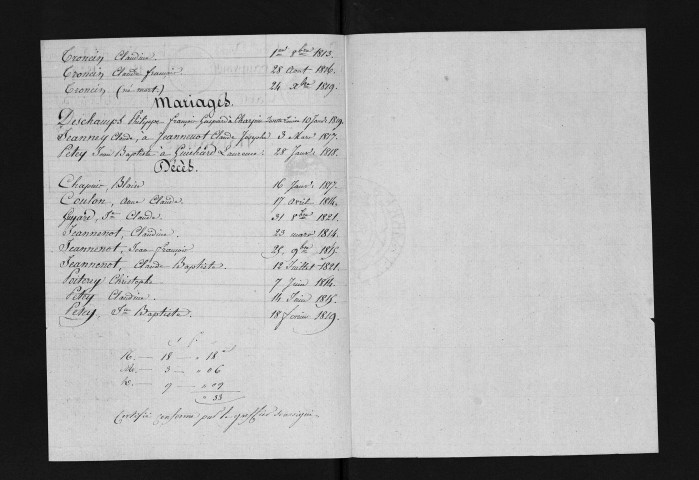 Troncin Claudine. 1er 8bre 1813.
Troncin Claude françois 28 Aout 1816.
Troncin (né mort.) 24 Xbre 1819.
Mariages.
Deschamps Philippe françois Guspard à Charpin 10 Janv. 1819.
Jeanney Claude, à Jeannenot Claude Josephe 3 Mars 1817.
Petey Jean Baptiste à Guichard Laurence 28 Janv. 1818.
Décès.
Chapuis, Blaise 16 Janv. 1817.
Coulon, Anne Claude. 17 avril 1814.
Guyard, Jn Claude. 31 8bre 1821.
Jeannenot, Claudine. 23 mars 1814.
Jeannenot, Jean françois 25, 9bre 1815.
Jeannenot, Claude Baptiste. 12 Juillet 1821.
Poiterey Christophe 7 Juin 1814.
Petey Claudine. 14 Juin 1815.
Petey, Jn Baptiste. 18 fevrier 1819.
N. — 18 — " 18
M. — 3 — " 06
D. — 9 — " 09
" 33
Certifié conforme par le greffier soussigné.